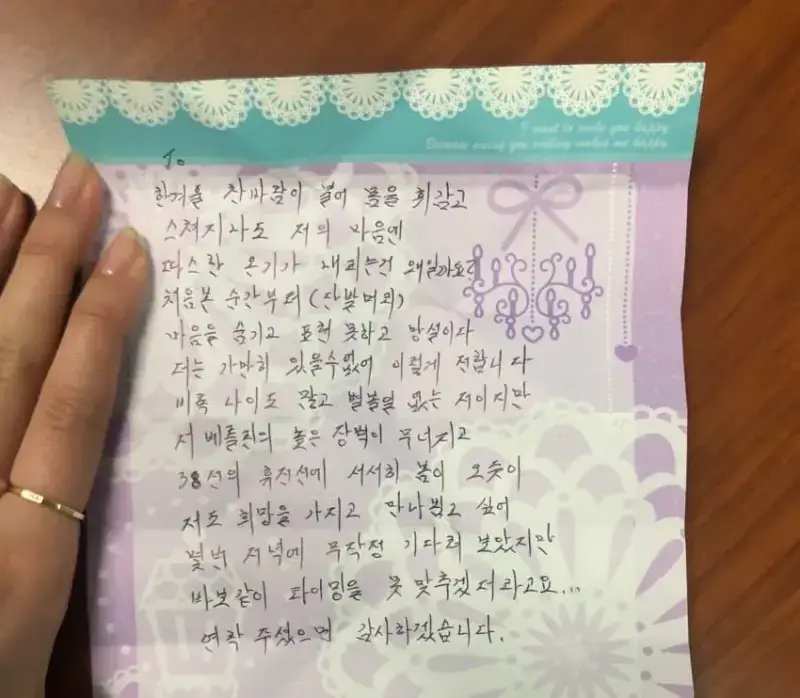 I want to make you happy
Because seeing you smiling makes me happy
To
한겨울 찬바람이 불어 몸을 휘감고
스쳐지나도 저의 마음엔
따스한 온기가 내피는건 왜일까요?
처음본 순간부터 (단발머리)
마음을 숨기고 표현 못하고 망설이다
더는 가만히 있을수없어 이렇게 전합니다
비록 나이도 많고 별볼일 없는 저이지만
저 베를린의 높은 장벽이 무너지고
38선의 휴전선에 서서히 봄이 오듯이
저도 희망을 가지고 만나뵙고 싶어
몇번 저녁에 무작정 기다려 보았지만
바보같이 타이밍을 못 맞추겠더라고요...
연락 주셨으면 감사하겠습니다.